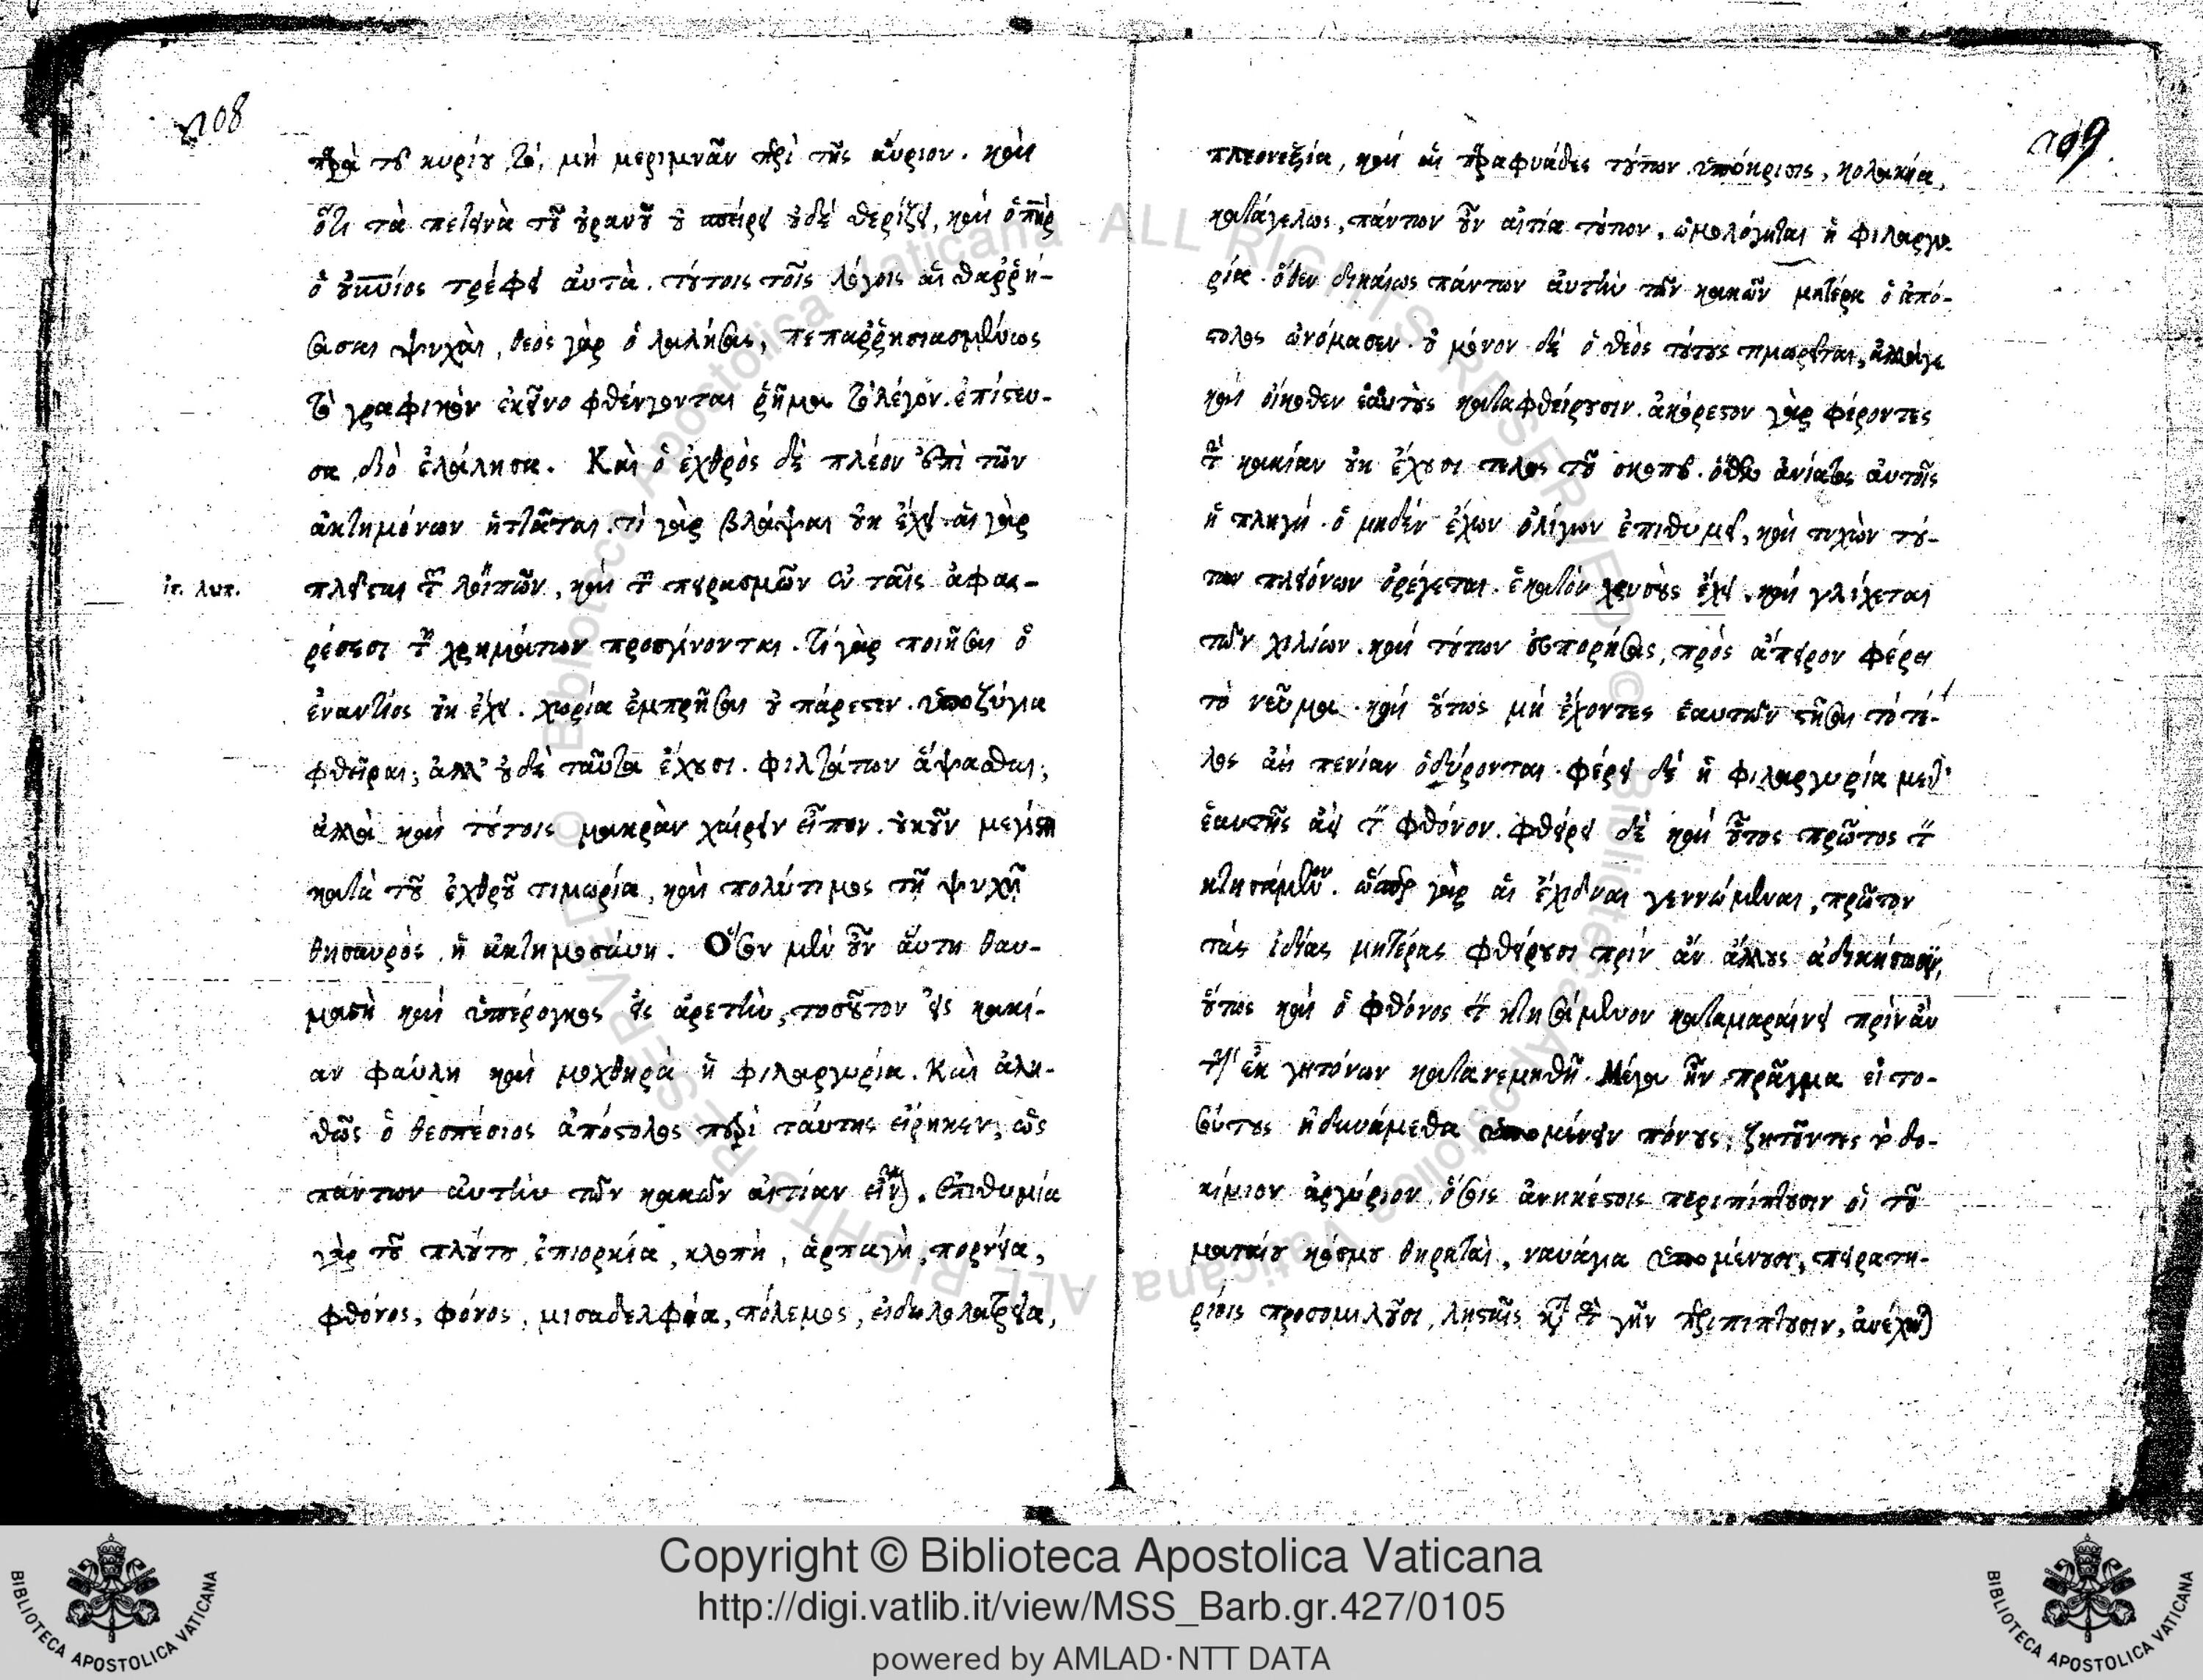 108
παρὰ τοῦ κυρίου τό, μὴ μεριμνᾶν περὶ τῆς αὔριον. καὶ
ὅτι τὰ πετεινὰ τοῦ οὐρανοῦ οὐ σπείρει οὐδὲ θερίζει, καὶ ὁ πατὴρ
ὁ οὐράνιος τρέφει αὐτά. τούτοις τοῖς λόγοις αἱ θαῤῥή-
σασαι ψυχαὶ, θεὸς γὰρ ὁ λαλήσας, πεπαῤῥησιασμένως
τὸ γραφικὸν ἐκεῖνο φθέγγονται ῥῆμα τὸ λέγον. ἐπίστευ-
σα διὸ ἐλάλησα. Καὶ ὁ ἐχθρὸς δὲ πλέον ἐπὶ τῶν
ἀκτημόνων ἡττᾶται. τί γὰρ βλάψαι οὐκ ἔχει. αἱ γὰρ
ἴσ. λυπ.
πλεῖσται τῶν λοιπῶν, καὶ τῶν πειρασμῶν ἐν ταῖς ἀφαι-
ρέσεσι τῶν χρημάτων προσγίνονται. τί γὰρ ποιῆσαι ὁ
ἐναντίος οὐκ ἔχει. χωρία ἐμπρῆσαι οὐ πάρεστιν. ὑποζύγια
φθεῖραι; ἀλλ' οὐδὲ ταῦτα ἔχουσι. φιλτάτων ἅψασθαι;
ἀλλὰ καὶ τούτοις μακρὰν χαίρειν εἶπον. οὐκοῦν μεγίστη
κατὰ τοῦ ἐχθροῦ τιμωρία, καὶ πολύτιμος τῇ ψυχῇ
θησαυρὸς ἡ ἀκτημοσύνη. Ὅσον μὲν οὖν αὕτη θαυ-
μαστὴ καὶ ὑπέρογκος εἰς ἀρετὴν, τοσοῦτον εἰς κακί-
αν φαύλη καὶ μοχθηρὰ ἡ φιλαργυρία. Καὶ ἀλη-
θῶς ὁ θεσπέσιος ἀπόστολος περὶ ταύτης εἴρηκεν, ὡς
πάντων αὐτὴν τῶν κακῶν αἰτίαν εἶναι. ἐπιθυμία
γὰρ τοῦ πλούτου, ἐπιορκία, κλοπὴ, ἁρπαγὴ, πορνεία,
φθόνος, φόνος, μισαδελφία, πόλεμος, εἰδωλολατρεία,
109
πλεονεξία, καὶ αἱ παραφυάδες τούτων ὑπόκρισις, κολακεία,
κατάγελως, πάντων οὖν αἰτία τούτων, ὡμολόγηται ἡ φιλαργυ-
ρία. ὅθεν δικαίως πάντων αὐτὴν τῶν κακῶν μητέρα ὁ ἀπό-
στολος ὠνόμασεν. οὐ μόνον δὲ ὁ θεὸς τούτους τιμωρεῖται, ἀλλάγε
καὶ οἴκοθεν ἑαυτοὺς καταφθείρουσιν. ἀκόρεστον γὰρ φέροντες
τὴν κακίαν οὐκ ἔχουσι τέλος τοῦ σκοποῦ. ὅθεν ἀνίατος αὐτοῖς
ἡ πληγή. ὁ μηδὲν ἔχων ὀλίγων ἐπιθυμεῖ, καὶ τυχὼν τού-
των πλειόνων ὀρέγεται. ἑκατὸν χρυσοὺς ἔχει, καὶ γλίχεται
τῶν χιλίων. καὶ τούτων εὐπορήσας, πρὸς ἄπειρον φέρει
τὸ νεῦμα. καὶ οὕτως μὴ ἔχοντες ἑαυτῶν στῆσαι τὸ τέ-
λος ἀεὶ πενίαν ὀδύρονται. φέρει δὲ ἡ φιλαργυρία μεθ'
ἑαυτῆς ἀεὶ τὸν φθόνον. φθείρει δὲ καὶ οὗτος πρῶτος τὸν
κτησάμενον. ὥσπερ γὰρ αἱ ἔχιδναι γεννώμεναι, πρῶτον
τὰς ἰδίας μητέρας φθείρουσι πρὶν ἂν ἄλλους ἀδικήσωσιν,
οὕτως καὶ ὁ φθόνος τὸν κτησάμενον καταμαραίνει πρὶν ἂν
τῶν ἐκ γειτόνων κατανεμηθῇ. Μέγα ἦν πρᾶγμα εἰ το-
σούτους ἠδυνάμεθα ὑπομένειν πόνους, ζητοῦντες τὸ δο-
κίμιον ἀργύριον, ὅσοις ἀνηκέστοις περιπίπτουσιν οἱ τοῦ
ματαίου κόσμου θηραταί, ναυάγια ὑπομένουσι, πειρατη-
ρίοις προσομιλοῦσι, λησταῖς κατὰ τὴν γῆν περιπίπτουσιν, ἀνέχονται
Copyright © Biblioteca Apostolica Vaticana
http://digi.vatlib.it/view/MSS_Barb.gr.427/0105
powered by AMLAD·NTT DATA